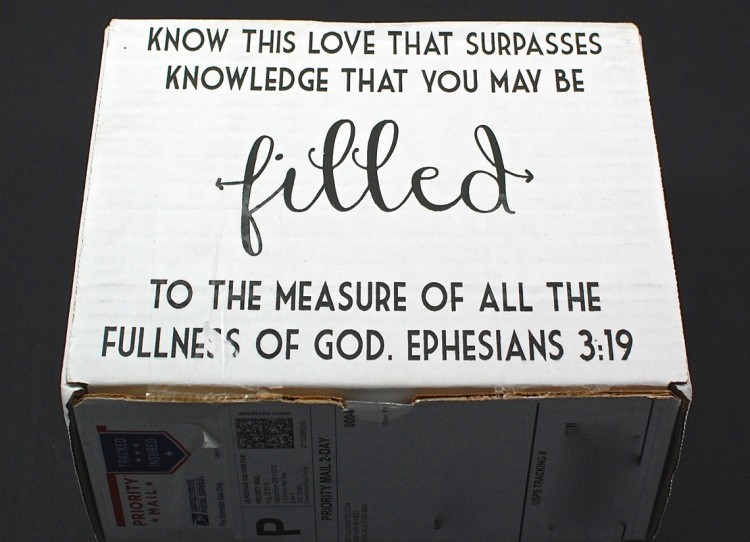 KNOW THIS LOVE THAT SURPASSES
KNOWLEDGE THAT YOU MAY BE
filled
TO THE MEASURE OF ALL THE
FULLNESS OF GOD. EPHESIANS 3:19
TRACKED
INSURED
PRIORITY
MAIL
P
PRIORITY MAIL 2-DAY
0004
USPS TRACKING #